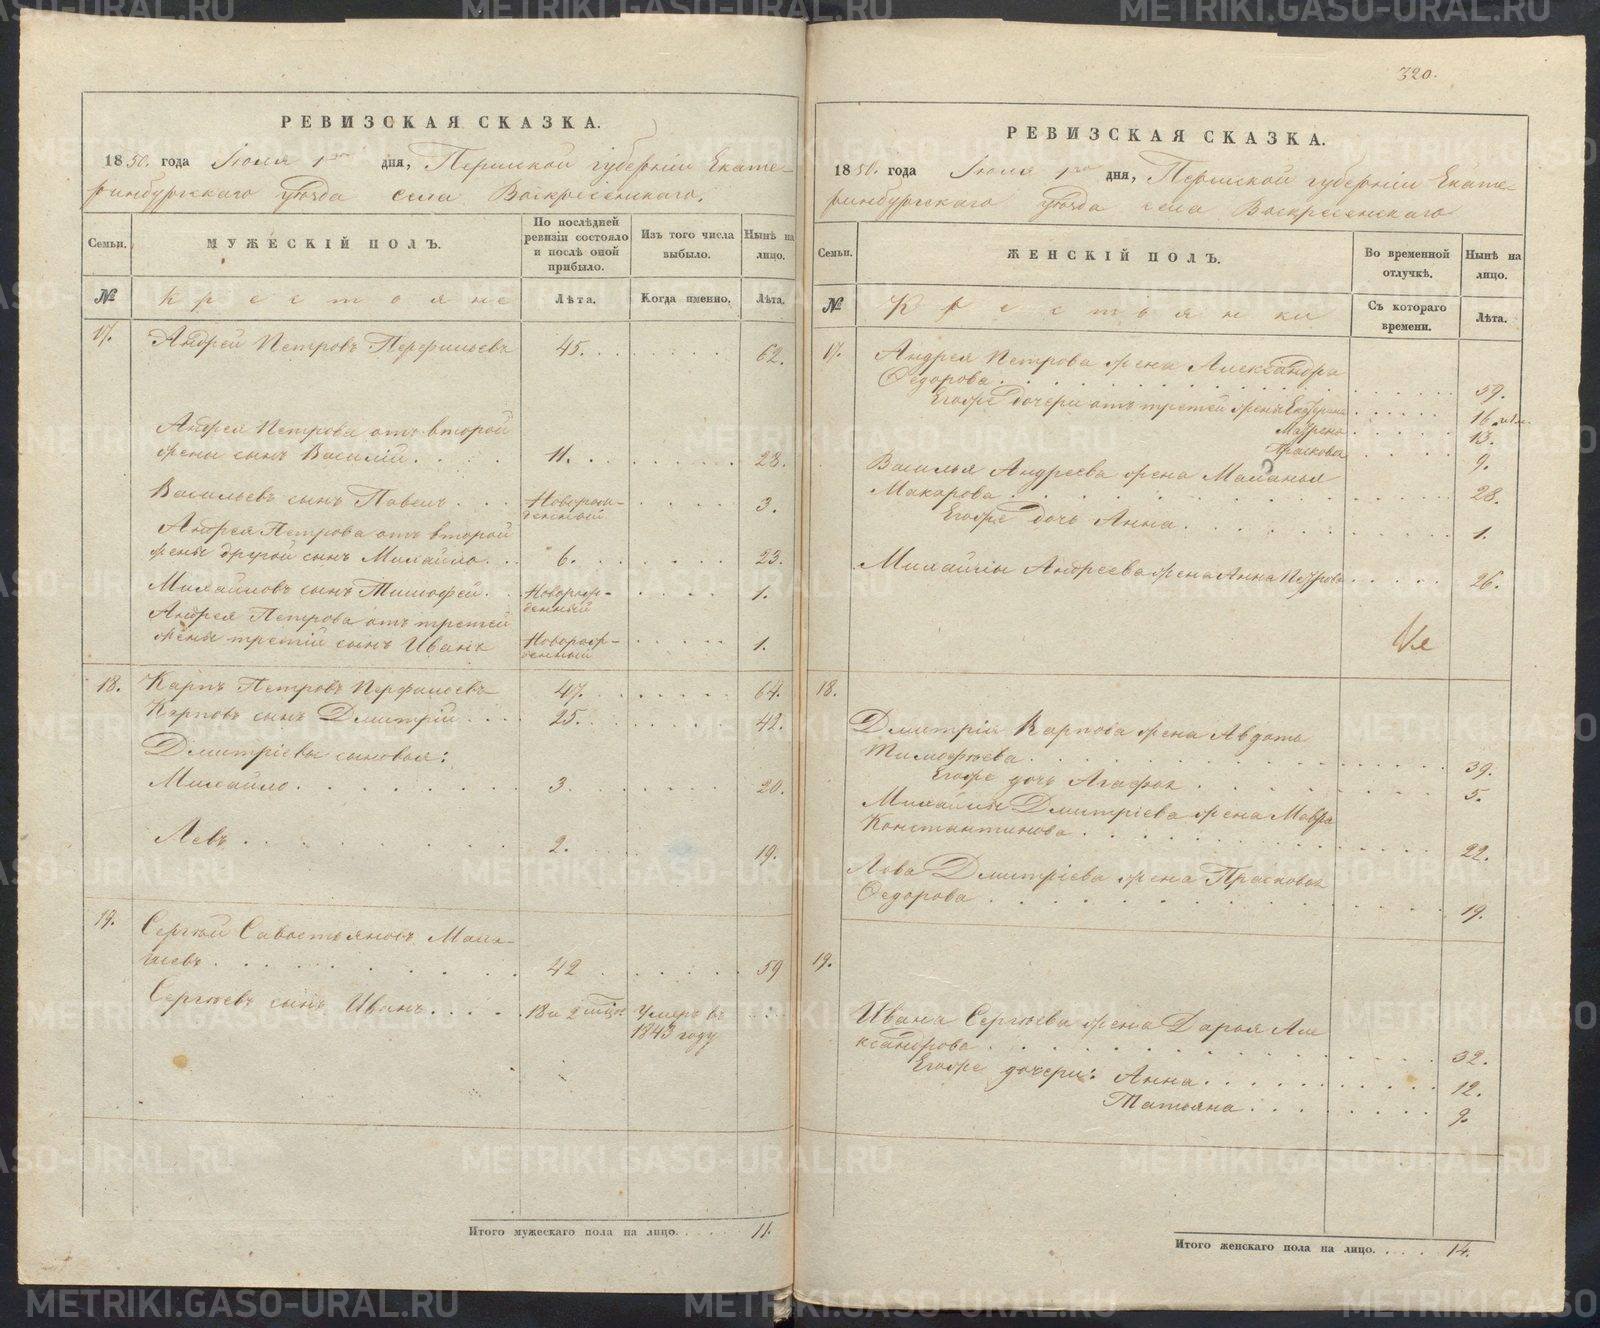 РЕВИЗСКАЯ СКАЗКА.
1850. года Іюля 1го дня, Пермской губерніи Екате-
ринбургскаго уѣзда села Воскресенскаго.
Семьи.
МУЖЕСКІЙ ПОЛЪ.
По послѣдней ревизіи состояло и послѣ оной прибыло.
Изъ того числа выбыло.
Нынѣ на лицо.
№
Крестьяне
Лѣта.
Когда именно.
Лѣта.
17. Андрей Петровъ Перфильевъ 45. 62.
Андрея Петрова отъ второй
жены сынъ Василій 11. 28.
Васильевъ сынъ Павелъ Новорож-
денный 3.
Андрея Петрова отъ второй
жены другой сынъ Михайло 6. 23.
Михайловъ сынъ Тимофей Новорож-
денный 1.
Андрея Петрова отъ третей
жены третій сынъ Иванъ Новорож-
денный 1.
18. Карпъ Петровъ Перфильевъ 47. 64.
Карповъ сынъ Дмитрій 25. 42.
Дмитріевы сыновья:
Михайло 3. 20.
Левъ 2. 19.
19. Сергѣй Савостьяновъ
42 59
Сергѣевъ сынъ Иванъ 18 и 2 Умеръ въ
1843 году
Итого мужескаго пола на лицо. 11.
320.
РЕВИЗСКАЯ СКАЗКА.
1850. года Іюля 1го дня, Пермской губерніи Екате-
ринбургскаго уѣзда села Воскресенскаго
Семьи.
ЖЕНСКІЙ ПОЛЪ.
Во временной отлучкѣ.
Нынѣ на лицо.
№
Крестьянки
Съ котораго времени.
Лѣта.
17. Андрея Петрова жена Александра
Федорова 59.
Егожъ дочери отъ третей жены Екатерина 16
Маврена 13.
Прасковья 9.
Василья Андреева жена Маланья
Макарова 28.
Егоже дочь Анна 1.
Михайлы Андреева жена Анна Петрова 26.
18.
Дмитрія Карпова жена Авдотья
Тимофѣева 39.
Егоже дочь Агафья 5.
Михайлы Дмитріева жена Мавра
Константинова 22.
Лова Дмитріева жена Прасковья
Федорова 19.
19.
Ивана Сергѣева жена Дарья Але
ксандрова 32.
Егоже дочери: Анна 12.
Татьяна 9.
Итого женскаго пола на лицо. 14.
METRIKI.GASO-URAL.RU